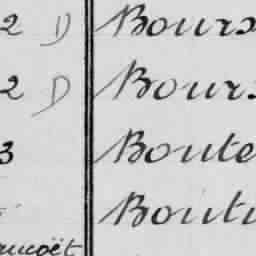 2 D Bours
2 D Bours
3 Boute
Boutu
aucoët